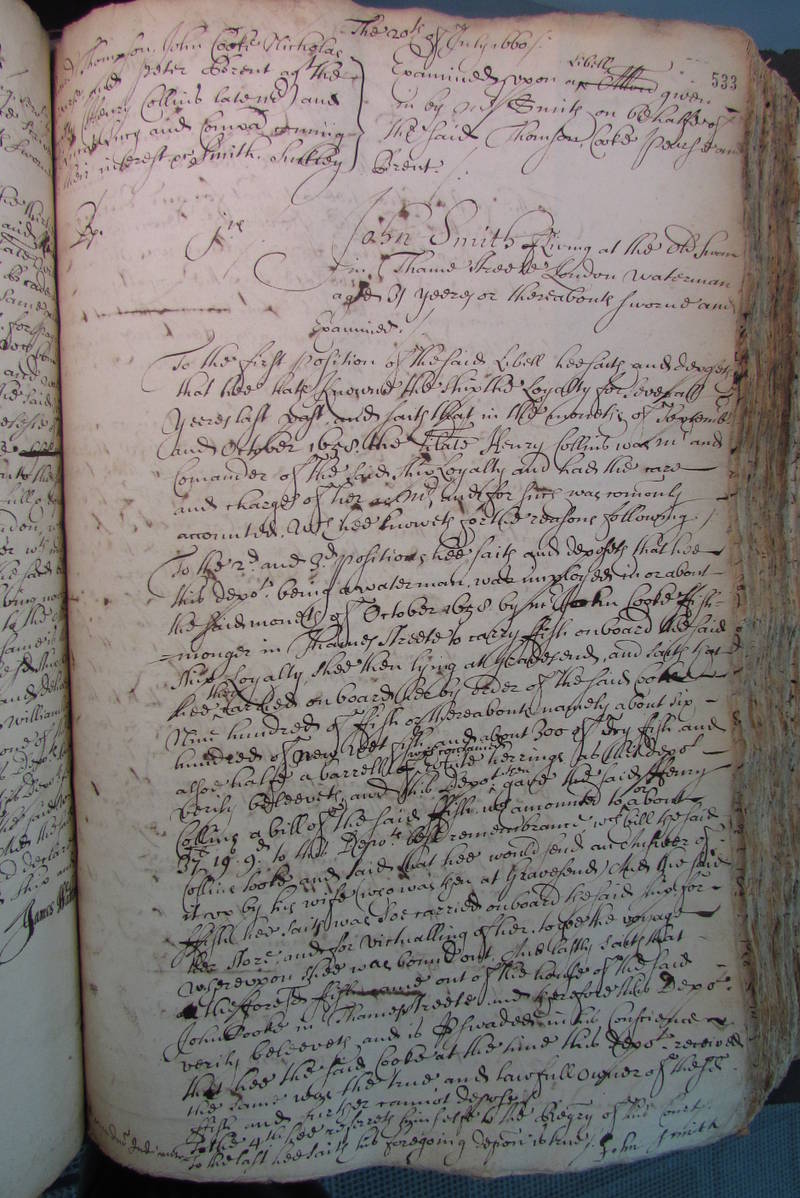 The 20th of July 1660 /.
533
Thompson, John Cooke Nicholas
and Peter Brent agt the
Henry Collins late mr) and
and Compa coming
their interest pr Smith. Suckley
Examined upon a Libell given
in by mr Smith on behalfe of
the said Thomson Cooke Pearse and
Brent. /.
Rp. jus
John Smith Living at the Old Swan
in Thame streete London Waterman
aged 31 yeeres or thereabouts sworne and
Examined.
To the first position of the said Libell hee saith and deposeth
that hee hath knowne the ship the Loyalty for severall
yeeres last past and saith that in the moneths of September
and October 1658. the late Henry Collins was mr and
Comander of the said ship Loyalty and had the care
and charge of her as mr, and for such was comonly
accounted. Wch hee knoweth for the reasons following /
To the 2d and 3d positions hee saith and deposeth that hee
this depot being a waterman was imployed in or about
the said moneth of October 1658 by mr John Cooke ffish-
=monger in Thames Streete to carry ffish on board the said
Ship Loyalty, shee then lying at Gravesend, and saith that
hee then carried on board her by order of the said Cooke
Nine hundred of ffish or thereabouts namely about six
hundred of new neet fish and about 300 of dry fish and
alsoe halfe a barrell of white herrings as this depot
verily beleeveth, and this depot then gave the said Henry
Collins a bill of the said ffish wch amounted to about
37 19s 9d to this Depots best remembrance, wch bill the said
Collins tooke and said that hee would send an Answer of
it up by his wife (who was then at Gravesend) And the said
ffish hee saith was soe carried on board the said ship for
her store, and for victualling of her, to for the voyage
whereupon shee was bound out. And lastly saith that
the foresd fish came out of the house of the said
John Cooke in Thames streete and therefore this Depot
verily beleeveth and is perswaded in his Conscience
that hee the said Cooke at the time this depot received
the same was the true and lawfull Owner of the sd
ffish and further cannot depose.
To the 4th hee referreth himselfe to the Regry of this Court.
To the last hee saith his foregoing deposn is true /.
John Smith